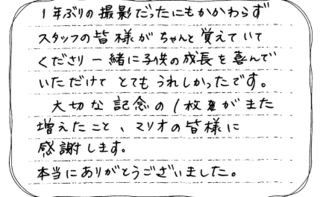 1年ぶりの撮影だったにもかかわらず
スタッフの皆様がちゃんと覚えていて
くださり一緒に子供の成長を喜んで
いただけて とてもうれしかったです。
大切な記念の1枚がまた
増えたこと、マリオの皆様に
感謝します。
本当にありがとうございました。